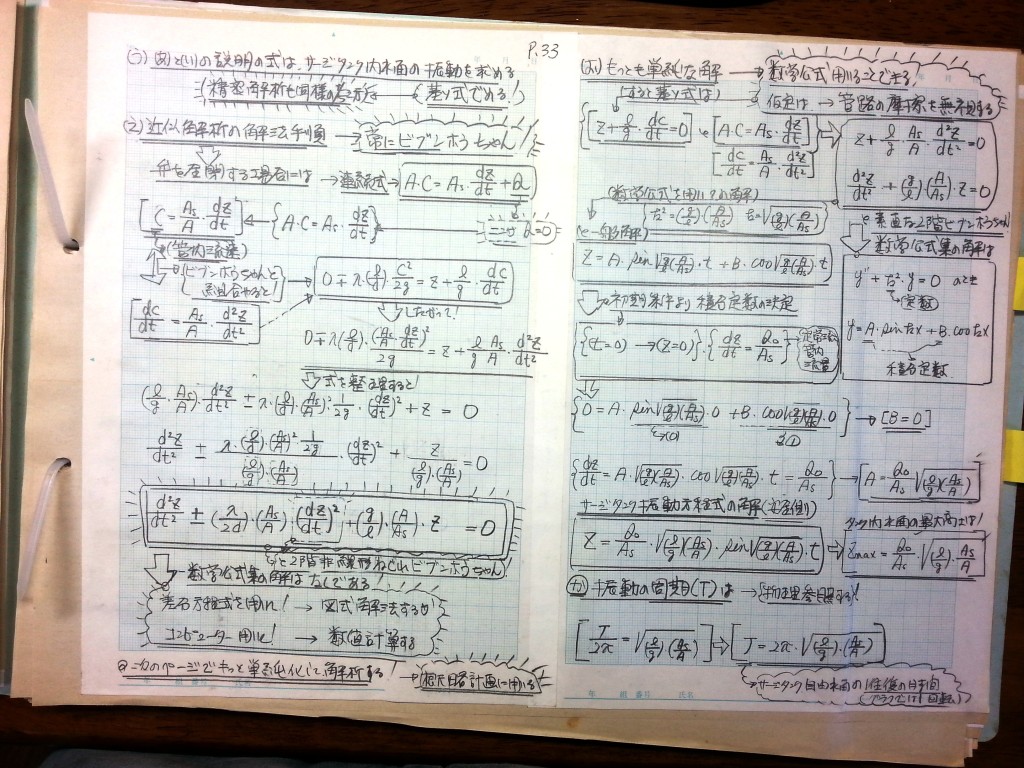 P.33
(う) (あ)と(い)の説明の式は、サージタンク内水面の振動を求める
基ソ式である!
精密解析も同様の
(え) 近似解析の解法手順 → 常にビブンホうちゃん!
弁を全閉する場合には → 連続式 → A·C = As·dz/dt + Q
[C = As/A · dz/dt] ← {A·C = As·dz/dt} ← ここで Q=0
(管内流速)
ビブンホうちゃんと
組合わせると
0 ∓ λ(l/d)·C²/2g = z + l/g · dc/dt
[dc/dt = As/A · d²z/dt²]
したがって!
0 ∓ λ(l/d)·(As/A·dz/dt)²/2g = z + l/g · As/A · d²z/dt²
式を整理すると!
(l/g · As/A)·d²z/dt² ± λ·(l/d)·(As/A)²·1/2g·(dz/dt)² + z = 0
d²z/dt² ± λ·(l/d)·(As/A)²·1/2g / (l/g)·(As/A) · (dz/dt)² + z / (l/g)·(As/A) = 0
d²z/dt² ± (λ/2d)·(As/A)·(dz/dt)² + (g/l)·(A/As)·z = 0
2階非線形ビブンホうちゃん!
数学公式集の解はなしである!
差分方程式を用い! → 図式解法する
コンピューター用い! → 数値計算する
@ 次のページでもっと単純化して解析する! → 概略計画に用いる
(お) もっとも単純な解 → 数学公式用いることできる
(すると基ソ式は) 仮定は → 管路の摩擦を無視する
[z + l/g · dc/dt = 0] と [A·C = As·dz/dt]
[dc/dt = As/A · d²z/dt²]
z + l/g · As/A · d²z/dt² = 0
d²z/dt² + (g/l)(A/As)·z = 0
(数学公式を用いての解)
k² = (g/l)(A/As) k = √(g/l)(A/As)
素直な2階ビブンホうちゃん
数学公式集の解は
<一般解>
Z = A·sin√(g/l)(A/As)·t + B·cos√(g/l)(A/As)·t
y'' + k²·y = 0 のとき
定数
y = A·sin kx + B·cos kx
積分定数
初期条件より積分定数の決定
{(t=0) → (Z=0)}·{dz/dt = Q₀/As}
定常流 管内流量
{0 = A·sin√(g/l)(A/As)·0 + B·cos√(g/l)(A/As)·0} → [B=0]
{dz/dt = A·√(g/l)(A/As)·cos√(g/l)(A/As)·t = Q₀/As} → [A = Q₀/As √(l/g)(As/A)]
サージタンク振動方程式の解
Z = Q₀/As·√(l/g)(As/A)·sin√(g/l)(A/As)·t
タンク内水面の最大高さは!
Zmax = Q₀/As·√(l/g)·As/A
(か) 振動の周期(T)は → 物理参照する!
[T/2π = √(l/g)(As/A)] → [T = 2π·√(l/g)·(As/A)]
→ サージタンク自由水面の1往復の時間
年 組 番号 氏名
年 組 番号 氏名